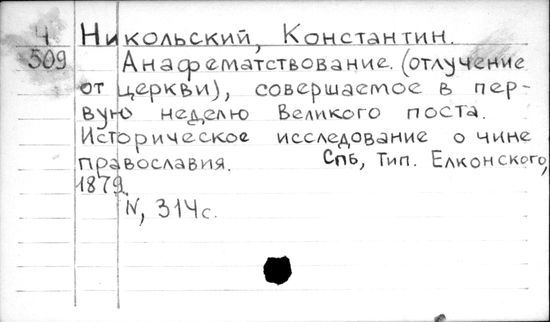 4 Никольский, Константин.
509 Анафематствование. (отлучение
от церкви), совершаемое в пер-
вую неделю Великого поста.
Историческое исследование о чине
православия. Спб, Тип. Елконского,
1879.
IV, 314 с.